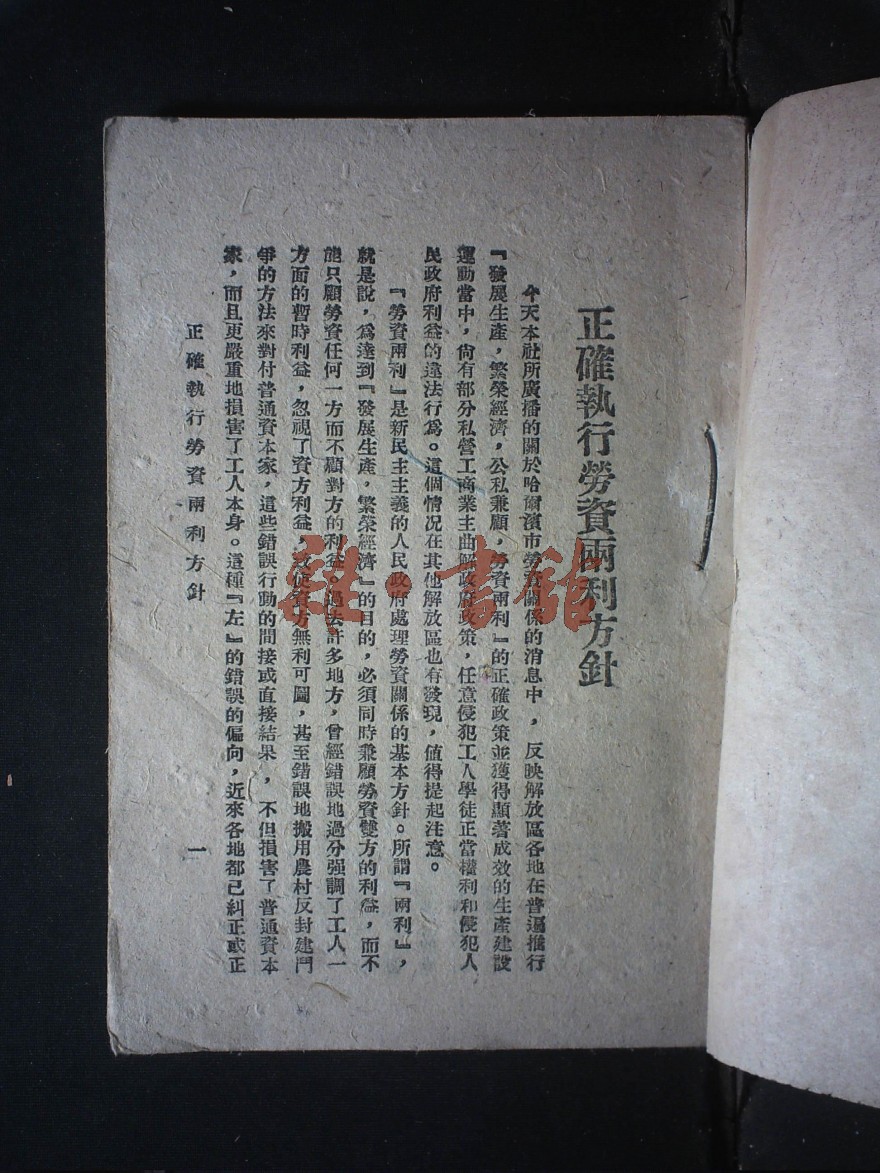 正確執行勞資兩利方針
今天本社所廣播的關於哈爾濱市勞資關係的消息中，反映解放區各地在普遍推行
『發展生產，繁榮經濟，公私兼顧，勞資兩利』的正確政策並獲得顯著成效的生產建設
運動當中，尙有部分私營工商業主曲解政府政策，任意侵犯工人學徒正當權利和侵犯人
民政府利益的違法行爲。這個情况在其他解放區也有發現，值得提起注意。
『勞資兩利』是新民主主義的人民政府處理勞資關係的基本方針。所謂『兩利』，
就是說，爲達到『發展生產，繁榮經濟』的目的，必須同時兼顧勞資雙方的利益，而不
能只顧勞資任何一方而不顧對方的利益。過去許多地方，曾經錯誤地過分强調了工人一
方面的暫時利益，忽視了資方利益，致使資方無利可圖，甚至錯誤地搬用農村反封建鬥
爭的方法來對付普通資本家，這些錯誤行動的間接或直接結果，不但損害了普通資本
家，而且更嚴重地損害了工人本身。這種『左』的錯誤的偏向，近來各地都已糾正或正
正確執行勞資兩利方針
一
雜·書館